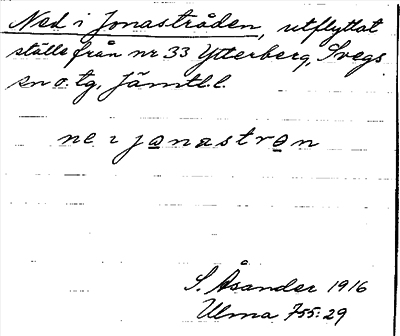 Ned i Jonastråden, utflyttat
ställe från nr 33 Ytterberg, Svegs
sn o. tg. Jämtl. l.
ne i jonastron
S. Åsander 1916
Ulma 755:29